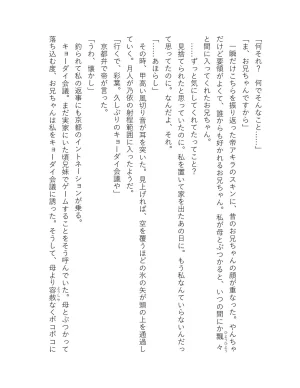 「何それ？　何でそんなこと……」
「ま、お兄ちゃんですから」
　一瞬だけこちらを振り返った帝アキラのスキンに、昔のお兄ちゃんの顔が重なった。やんちゃ
だけど要領がよくて、誰からも好かれるお兄ちゃん。私が母とぶつかると、いつの間にか飄々
と間に入ってくれたお兄ちゃん。
　……ずっと気にしてくれてたってこと？
　見捨てられたと思っていたのに。私を置いて家を出たあの日に。もう私なんていらないんだっ
て思ってたのに。なんだよ、それ。
「……あほらし」
　その時、甲高い風切り音が耳を突いた。見上げれば、空を覆うほどの氷の矢が頭の上を通過し
ていく。月人が乃依の射程範囲に入ったようだ。
「行くで、彩葉。久しぶりのキョーダイ会議や」
　京都弁で帝が言った。
「うわ、懐かし」
　釣られて私の返事にも京都のイントネーションが乗る。
　キョーダイ会議。まだ実家にいた頃兄妹でゲームすることをそう呼んでいた。母とぶつかって
落ち込む度、お兄ちゃんは私をキョーダイ会議に誘った。そうして、母より容赦なくボコボコに